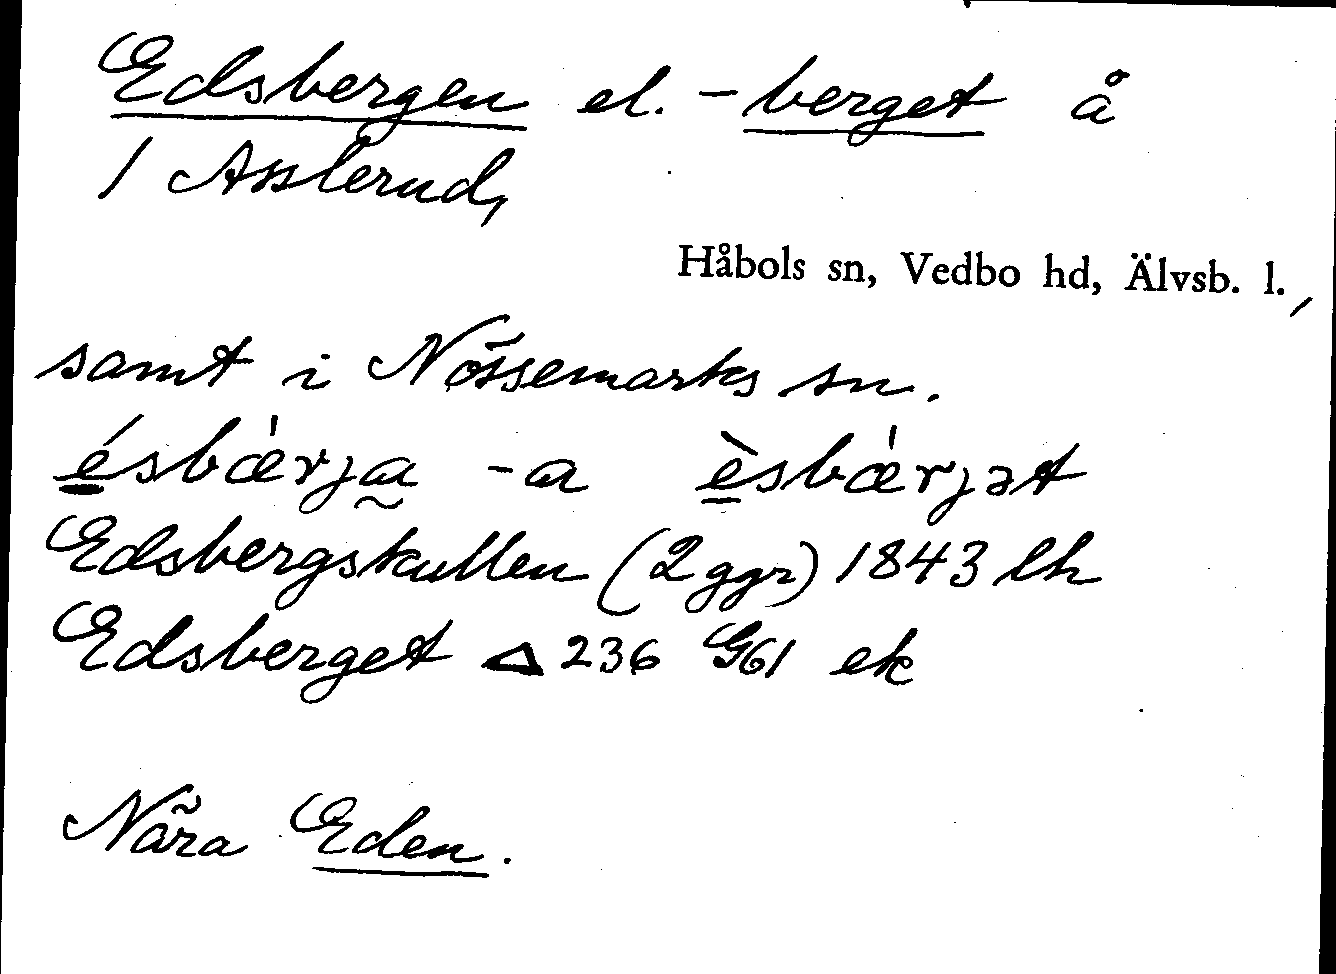 Edsbergen el. -berget å
1 Asslerud,
Håbols sn, Vedbo hd, Älvsb. l.,
samt i Nössemarks sn.
ésbæ̀rja -a èsbæ̀rjət
Edsbergskullen (2 ggr) 1843 lh
Edsberget △ 236 G61 ek
Nära Eden.